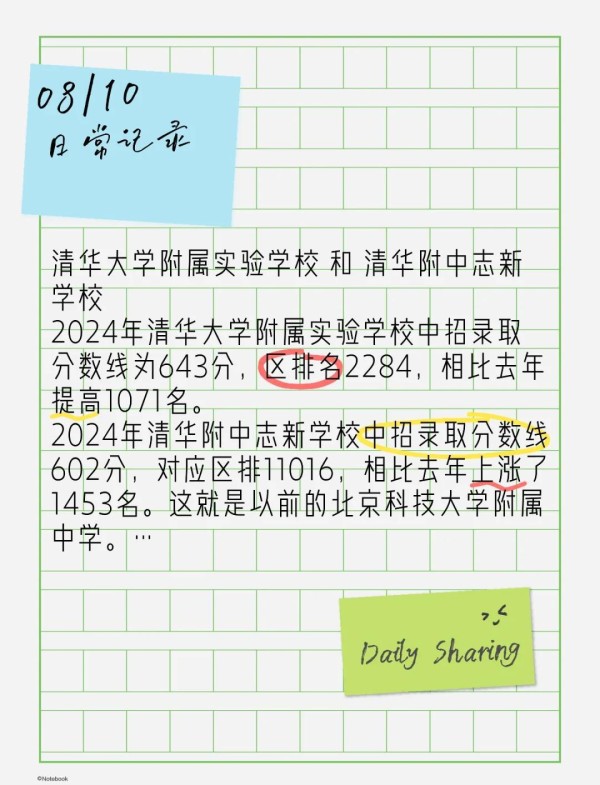 08/10
日常记录
清华大学附属实验学校 和 清华附中志新
学校
2024年清华大学附属实验学校中招录取
分数线为643分，区排名2284，相比去年
提高1071名。
2024年清华附中志新学校中招录取分数线
602分，对应区排11016，相比去年上涨了
1453名。这就是以前的北京科技大学附属
中学。…
Daily Sharing
©Notebook